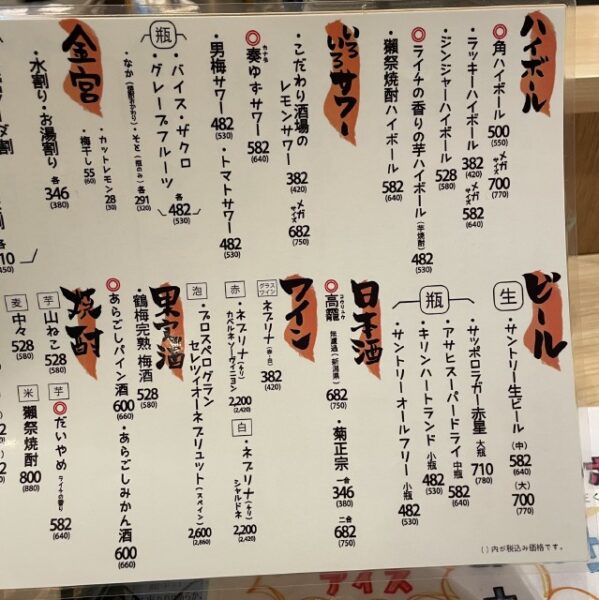 ハイボール
◎角ハイボール 500 (550) メガサイズ 700 (770)
・ラッキーハイボール 382 (420) メガサイズ 582 (640)
・ジンジャーハイボール 528 (580)
◎ライチの香りの芋ハイボール (芋焼酎) 482 (530)
・獺祭焼酎ハイボール 582 (640)
いろいろサワー
・こだわり酒場のレモンサワー 382 (420) メガサイズ 682 (750)
◎奏ゆずサワー 582 (640)
・男梅サワー 482 (530)
・トマトサワー 482 (530)
瓶
・バイス・ザクロ
・グレープフルーツ 各482 (530)
・なか(焼酎おかわり)・そと(瓶のみ) 各291 (320)
・カットレモン 28 (30)
・梅干し 55 (60)
金宮
・水割り・お湯割り 各346 (380)
ビール
生
・サントリー生ビール (中) 582 (640) (大) 700 (770)
瓶
・サッポロラガー赤星 大瓶 710 (780)
・アサヒスーパードライ 中瓶 582 (640)
・キリンハートランド 小瓶 482 (530)
・サントリーオールフリー 小瓶 482 (530)
日本酒
◎高龗 無濾過(新潟県) 682 (750)
・菊正宗 一合 346 (380) 二合 682 (750)
ワイン
グラスワイン
・ネブリナ(赤・白) 382 (420)
赤
・ネブリナ(チリ)
カベルネソーヴィニヨン 2,200 (2,420)
白
・ネブリナ(チリ)
シャルドネ 2,200 (2,420)
泡
・プロスペログラン
セレツィオーネブリュット(スペイン) 2,600 (2,860)
果実酒
・鶴梅完熟 梅酒 528 (580)
◎あらごしパイン酒 600 (660)
・あらごしみかん酒 600 (660)
焼酎
芋
◎山ねこ 528 (580)
芋
◎だいやめ ライチの香り 582 (640)
麦
中々 528 (580)
米
獺祭焼酎 800 (880)
( )内が税込み価格です。
アイス